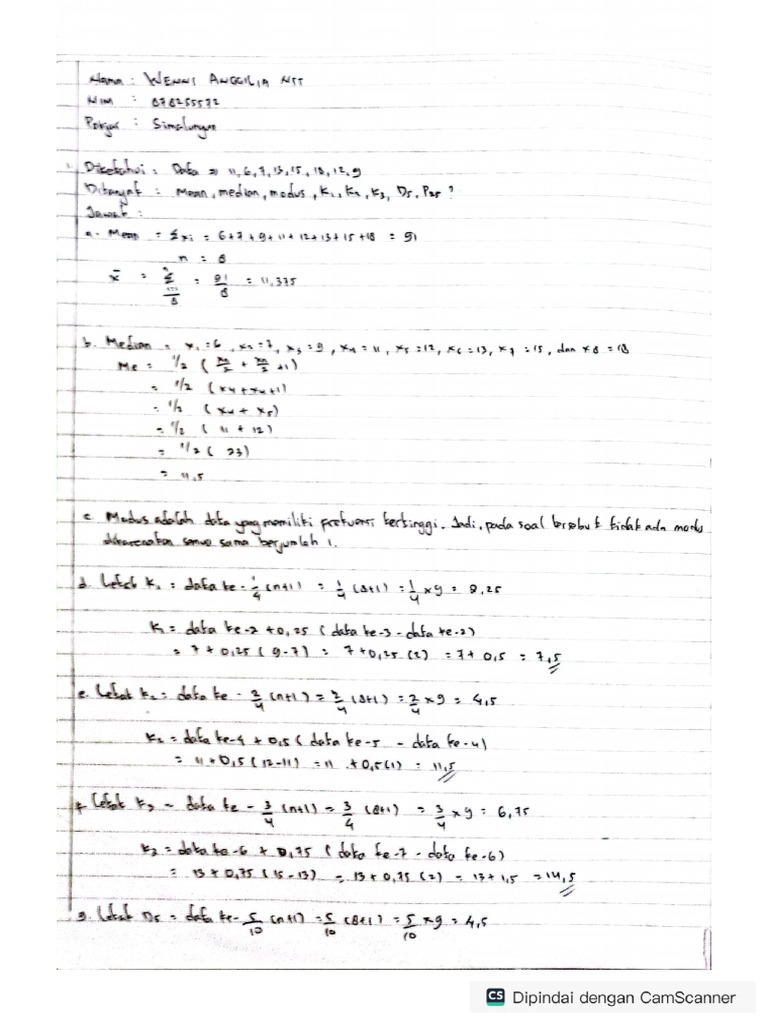 Nama : WENNI ANGGILIA NST
NIM : 878255572
Pokjar : Simalungun
1. Diketahui : Data => 11, 6, 7, 13, 15, 18, 12, 9
Ditanya : Mean, median, modus, K1, K2, K3, D5, P25 ?
Jawab :
a. Mean = Σxi = 6+7+9+11+12+13+15+18 = 91
n = 8
x̄ = Σ/8 = 91/8 = 11,375
b. Median = x1 = 6, x2 = 7, x3 = 9, x4 = 11, x5 = 12, x6 = 13, x7 = 15, dan x8 = 18
Me = 1/2 (xn/2 + xn/2 +1)
= 1/2 (x4 + x4+1)
= 1/2 (x4 + x5)
= 1/2 ( 11 + 12)
= 1/2 ( 23)
= 11,5
c. Modus adalah data yang memiliki frekuensi tertinggi. Jadi, pada soal tersebut tidak ada modus
dikarenakan semua sama berjumlah 1.
d. Letak K1 = data ke - 1/4 (n+1) = 1/4 (8+1) = 1/4 x 9 = 2,25
K1 = data ke-2 + 0,25 ( data ke-3 - data ke-2)
= 7 + 0,25 ( 9-7) = 7 + 0,25 (2) = 7 + 0,5 = 7,5
e. Letak K2 = data ke - 2/4 (n+1) = 2/4 (8+1) = 2/4 x 9 = 4,5
K2 = data ke-4 + 0,5 ( data ke-5 - data ke-4)
= 11 + 0,5 ( 12-11) = 11 + 0,5 (1) = 11,5
f. Letak K3 = data ke - 3/4 (n+1) = 3/4 (8+1) = 3/4 x 9 = 6,75
K3 = data ke-6 + 0,75 ( data ke-7 - data ke-6)
= 13 + 0,75 ( 15-13) = 13 + 0,75 (2) = 13 + 1,5 = 14,5
g. Letak D5 = data ke - 5/10 (n+1) = 5/10 (8+1) = 5/10 x 9 = 4,5
CS Dipindai dengan CamScanner